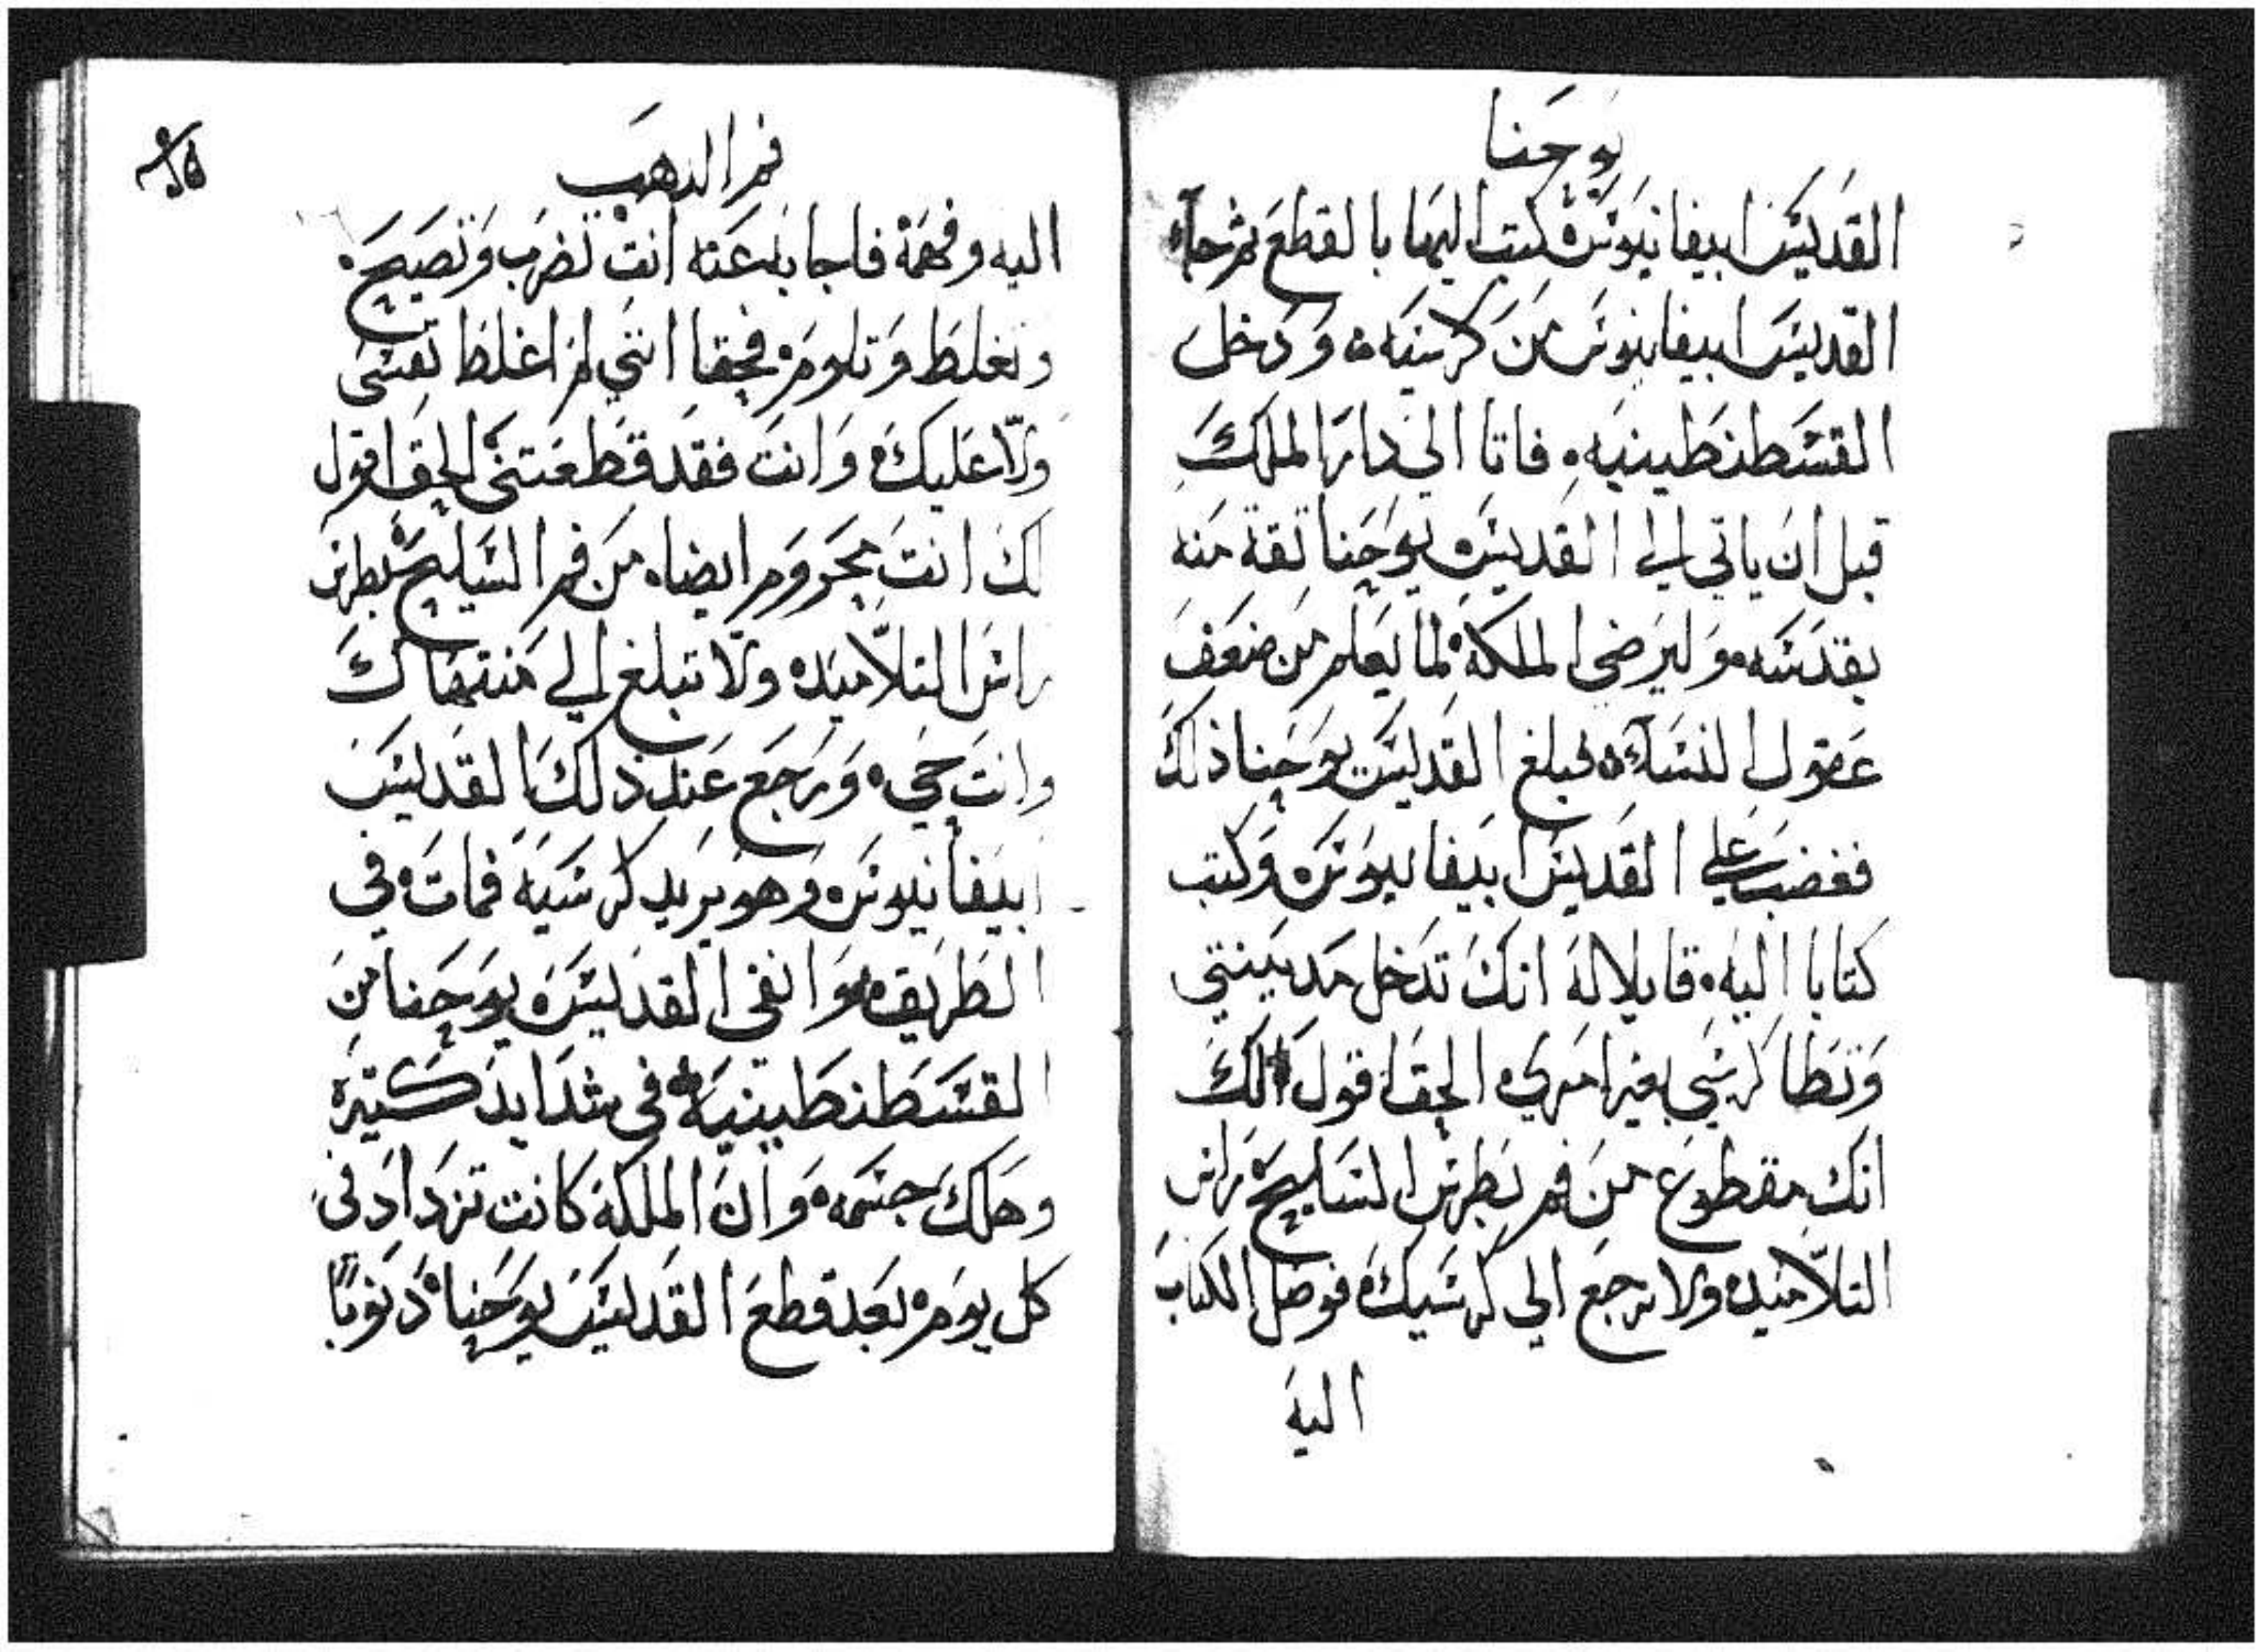 يوحنا
القديس ابيفانيوس كتب اليها بالقطع ثم جآء
القديس ابيفانيوس من كرسيه ودخل
القسطنطينيه فاتا الي دار الملك
قبل ان ياتي الي القديس يوحنا تقة منه
بقدسه وليرضي الملكة لما يعلم من ضعف
عقول النسآء فبلغ القديس يوحنا ذلك
فغضب علي القديس ابيفانيوس وكتب
كتابا اليه قايلا له انك تدخل مدينتي
وتطا كرسي بغير امري الحق اقول لك
انك مقطوع من فم بطرس السليح راس
التلاميد ولا ترجع الي كرسيك فوصل الكتاب
اليه
فم الدهب
اليه وفهمه فاجابه عنه انت تضرب وتصيح
وتغلط وتلوم فحقا انني لم اغلظ نفسي
ولا عليك وانت فقد قطعتني الحق اقول
لك انت محروم ايضا من فم السليح بطرس
راس التلاميد ولا تبلغ الي منتهاك
وانت حي ورجع عند ذلك القديس
ابيفانيوس وهو يريد كرسيه فمات في
الطريق وانفي القديس يوحنا من
القسطنطينيه في شدايد كتيره
وهلك جسمه وان الملكة كانت تزداد في
كل يوم بعد قطع القديس يوحنا دنوبًا